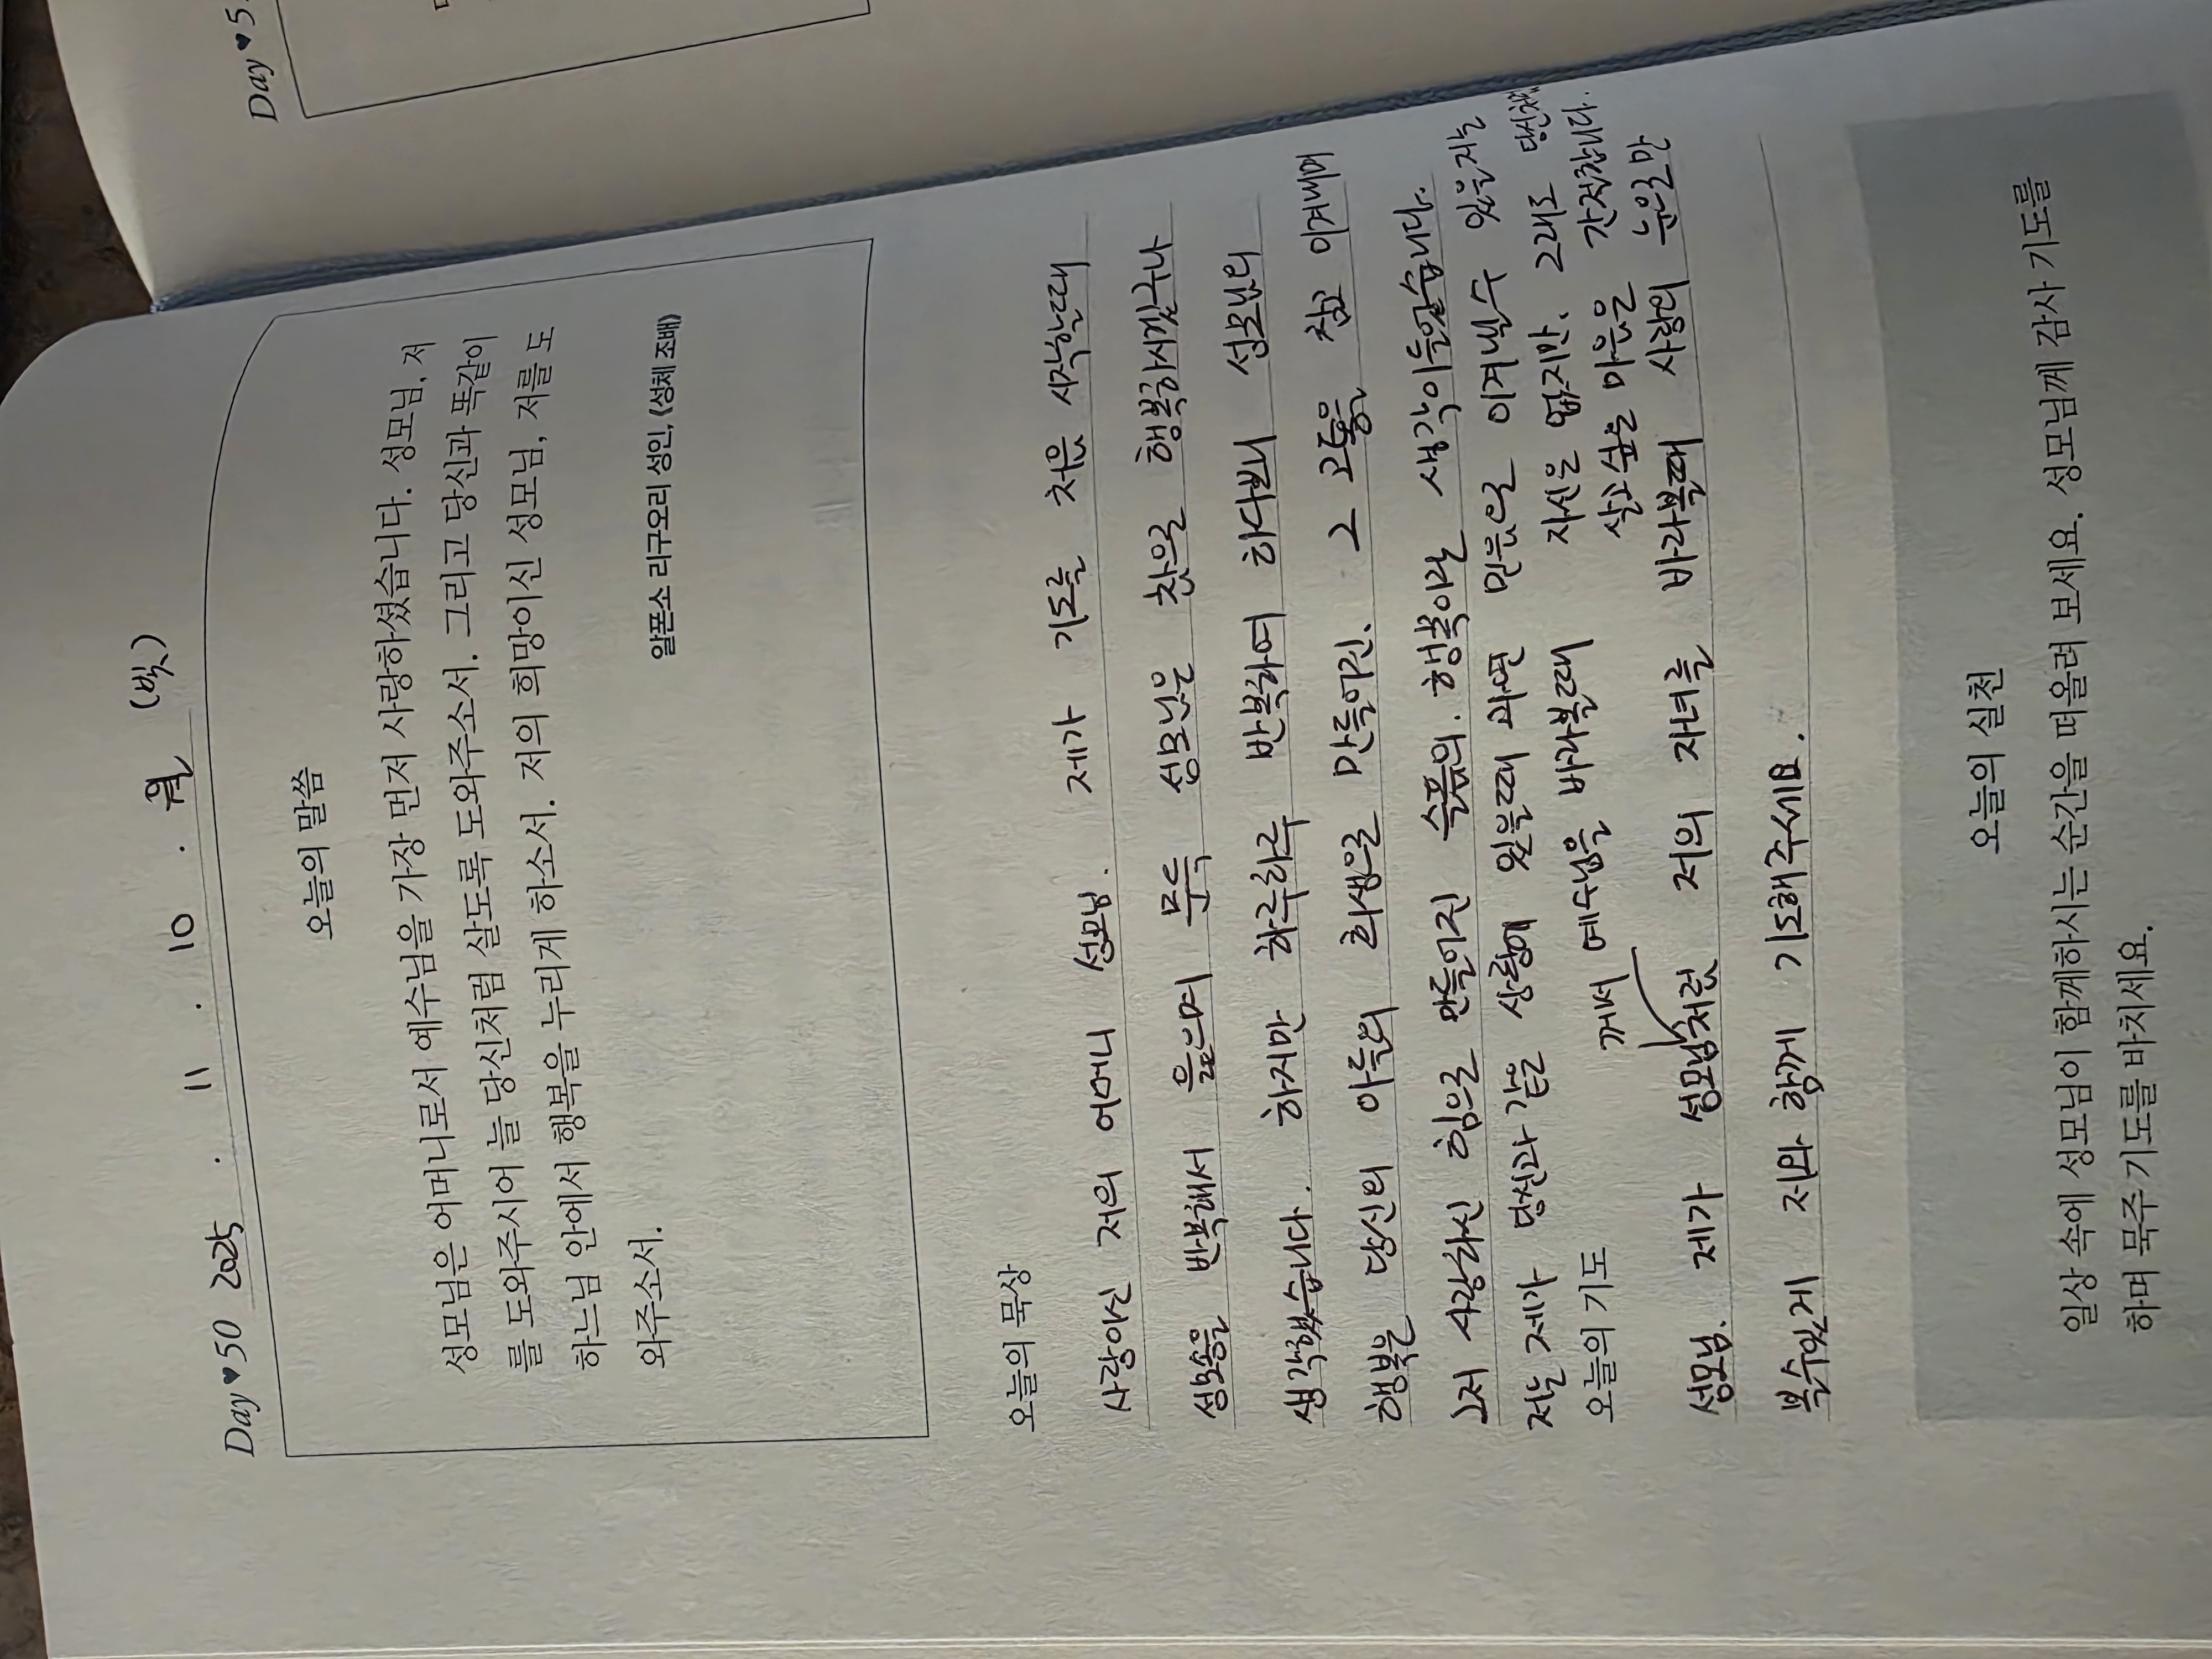 Day ♥ 50 2025 . 11 . 10 . 월 (빛)
오늘의 말씀
성모님은 어머니로서 예수님을 가장 먼저 사랑하셨습니다. 성모님, 저
를 도와주시어 늘 당신처럼 살도록 도와주소서. 그리고 당신과 똑같이
하느님 안에서 행복을 누리게 하소서. 저의 희망이신 성모님, 저를 도
와주소서.
알폰소 리구오리 성인, 《성체 조배》
오늘의 묵상
사랑이신 저의 어머니 성모님. 제가 기도를 처음 시작할때
성모송을 반복해서 읊으며 문득 성모님은 참을 행복하시겠구나
생각했습니다. 하지만 하루하루 반복하여 하다보니 성모님의
행복은 당신의 아들의 희생을 만들어진. 그 고통을 참고 이겨내며
그저 사랑하신 힘으로 만들어진 슬픔의. 행복이란 생각이들었습니다.
저는 제가 당신과 같은 상황에 있을때 과연 믿음으로 이겨낼수 있을지는
자신은 없지만. 그대로 당신처럼
오늘의 기도
께서 예수님을 바라볼때 살고싶은 마음은 간절합니다.
성모님. 제가 성모님처럼 저의 자녀를 바라볼때 사랑의 눈으로만
볼수있게 저와 함께 기도해주세요.
오늘의 실천
일상 속에 성모님이 함께하시는 순간을 떠올려 보세요. 성모님께 감사 기도를
하며 묵주 기도를 바치세요.
Day ♥ 5